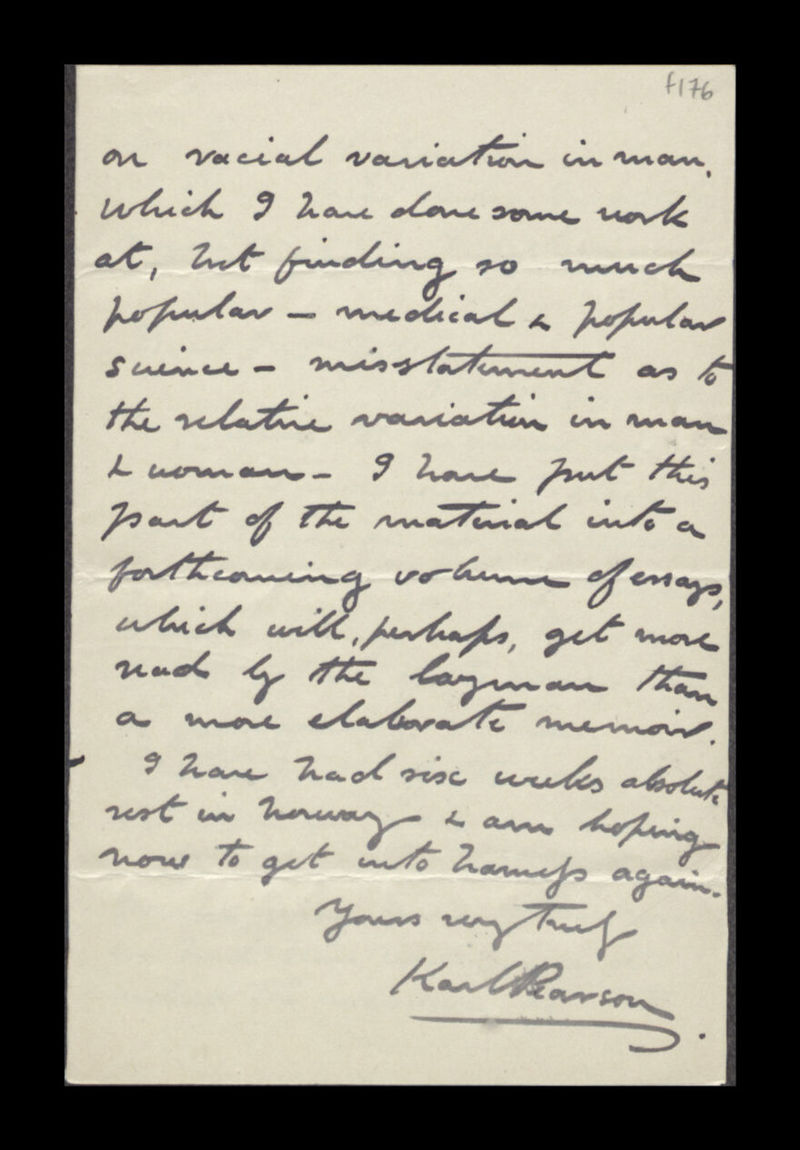 f176
on racial variation in man,
which I have done some work
at, but finding so much
popular – medical & popular
science – misstatement as to
the relative variation in man
& woman – I have put this
part of the material into a
forthcoming volume of essays,
which will, perhaps, get more
read by the layman than
a more elaborate memoir.
I have had six weeks absolute
rest in Norway & am hoping
now to get into harness again.
Yours very truly
Karl Pearson.